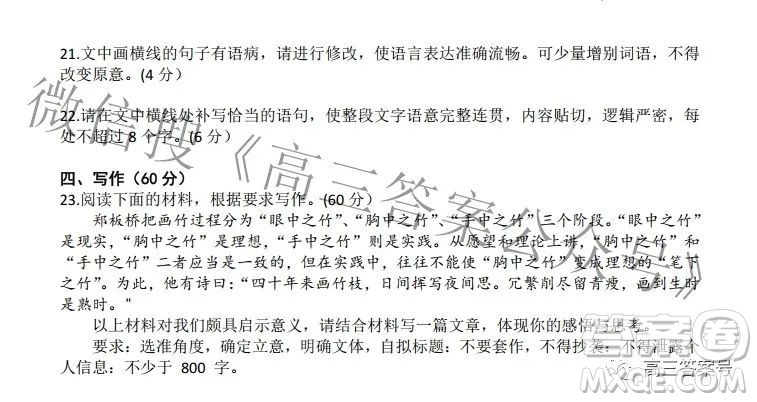 21.文中画横线的句子有语病，请进行修改，使语言表达准确流畅。可少量增别词语，不得
改变原意。(4 分）
22.请在文中横线处补写恰当的语句，使整段文字语意完整连贯，内容贴切，逻辑严密，每
处不超过 8 个字。(6 分）
四、写作（60 分）
23.阅读下面的材料，根据要求写作。(60 分）
郑板桥把画竹过程分为“眼中之竹”、“胸中之竹”、“手中之竹”三个阶段。“眼中之竹”
是现实，“胸中之竹”是理想，“手中之竹”则是实践。从愿望和理论上讲，“胸中之竹”和
“手中之竹”二者应当是一致的，但在实践中，往往不能使“胸中之竹”变成理想的“笔下
之竹”。为此，他有诗曰：“四十年来画竹枝，日间挥写夜间思。冗繁削尽留青瘦，画到生时
是熟时。"
以上材料对我们颇具启示意义，请结合材料写一篇文章，体现你的感悟与思考。
要求：选准角度，确定立意，明确文体，自拟标题：不要套作，不得抄袭：不得泄露个
人信息：不少于 800 字。
微信搜《高三答案公众号》
答案圈
高三答案号